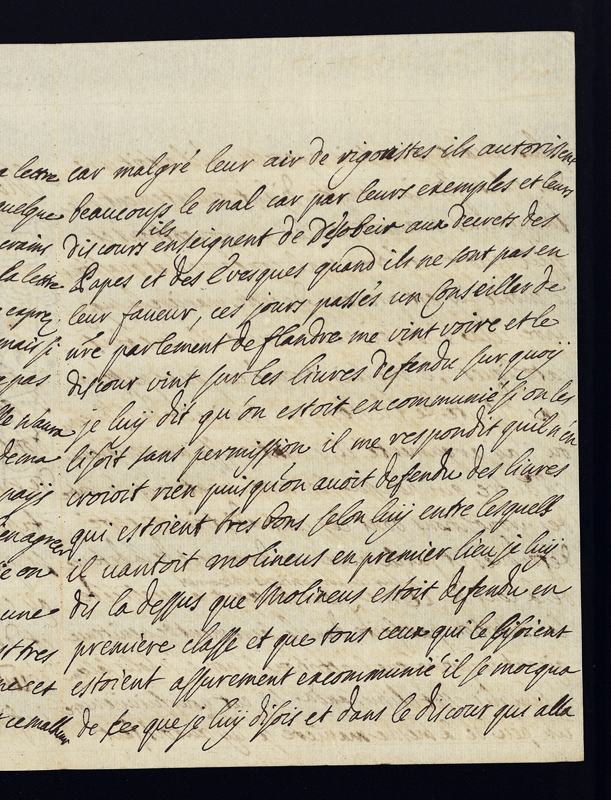 a lettre car malgré leur air de rigoristes ils autorisent
quelque beaucoup le mal car par leurs exemples et leurs
ils
discours enseignent de Désobeir aux decrets des
la lettre Papes et des Evesques quand ils ne sont pas en
leur faveur, ces jours passés un Conseiller de
mais si nre parlement de flandre me vint voire et le
pas discour vint sur les livres defendu sur quoy
je luy dit qu'on estoit excommunié si on les
dema lisoit sans permission il me respondit quil n'en
pays croioit rien puisqu'on avoit defendu des livres
qui estoient tres bons selon luy entre lesquells
on il vantoit molineus en premier lieu je luy
une dis la dessus que Molineus estoit defendu en
tres premiere classe et que tous ceux qui le lisoient
et estoient assurement excommunié il se mocqua
ce malheur de ce que je luy disois et dans le discour qui alla